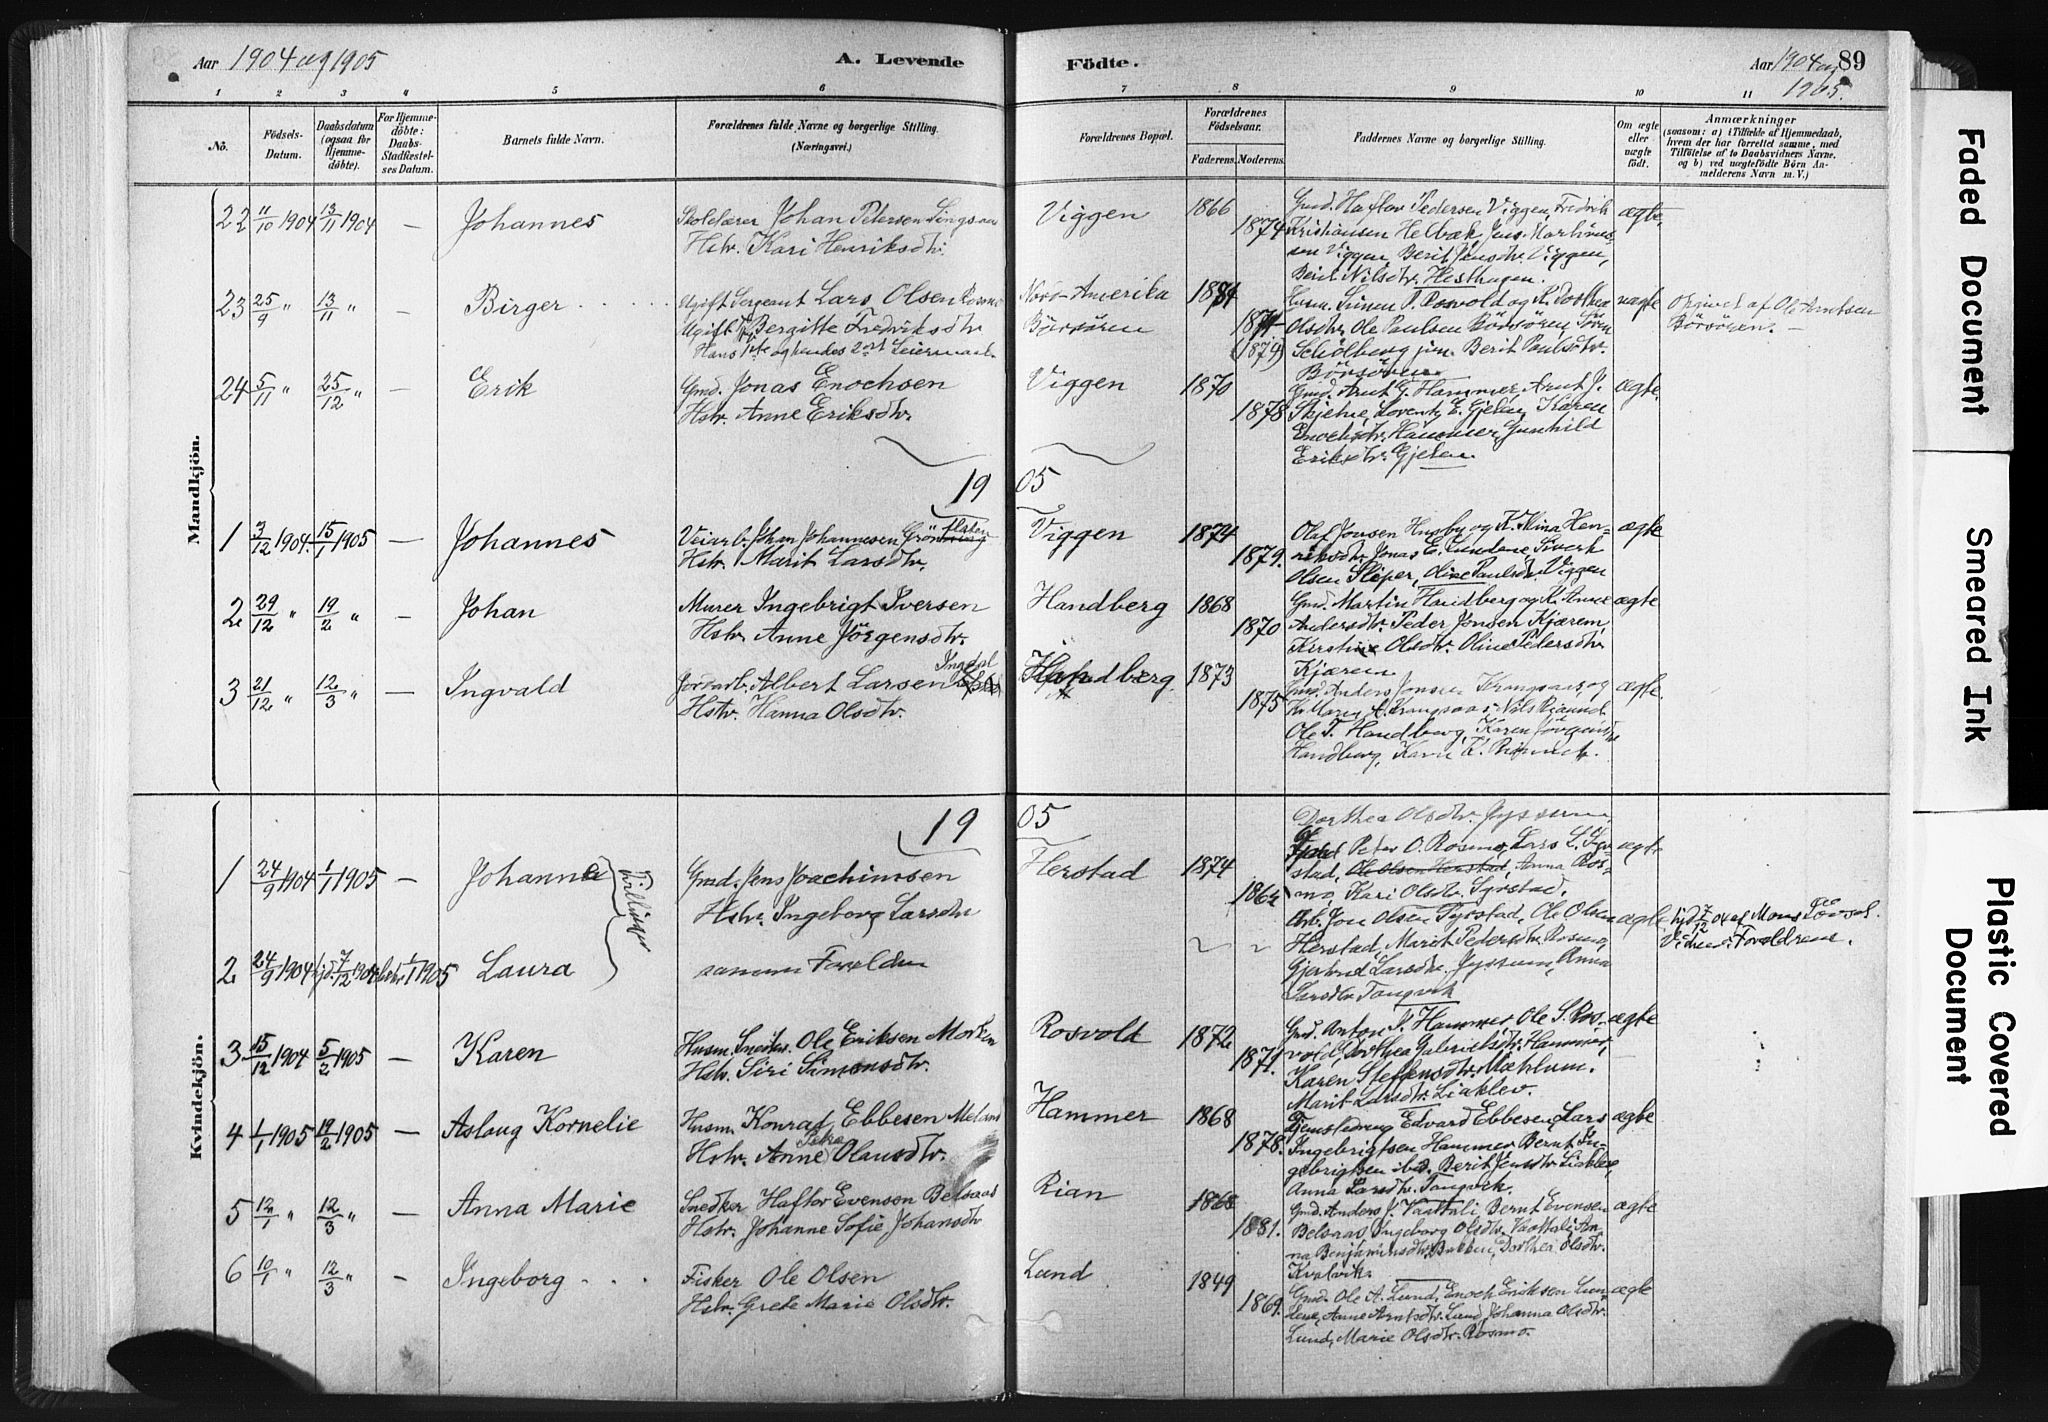 Aar 1904 og 1905
A. Levende
Födte.
Aar 1904 og 1905.
89
1 2 3 4 5 6 7 8 9 10 11
No.
Födsels-Datum.
Daabsdatum (ogsaa for Hjemme-döbte).
For Hjemme-döbte: Daabs-Stadfæstel-ses Datum.
Barnets fulde Navn.
Forældrenes fulde Navne og borgerlige Stilling. (Næringsvei.)
Forældrenes Bopæl.
Forældrenes Födselsaar.
Faderens. Moderens.
Faddernes Navne og borgerlige Stilling.
Om ægte eller uægte födt.
Anmærkninger
(saasom: a) i Tilfælde af Hjemmedaab,
hvem der har forrettet samme, med
Tilföielse af to Daabsvidners Navne,
og b) ved uægtefödte Börn An-
melderens Navn m. V.)
Mandkjön.
22 11/10 1904 13/11 1904 — Johannes
Skolelærer Johan Petersen
Hstr. Kari Henriksdtr.
Viggen 1866 1874
Gmd. Haftor Pedersen Viggen, Fredrik
Kristiansen Helbæk, Jens Martinus-
sen Viggen, Berit Jensdtr. Viggen,
Berit Nilsdtr. Hesthagen.
ægte.
23 25/9 " 13/11 " — Birger
Ugift Sergeant Lars Olsen Rosmo
Ugift Bergitte Fredriksdtr
Hans 1ste og hendes 2det Leiermaal.
Nord-Amerika
Börsören
(1879)
Olsdtr. Ole Paulsen Börsören, Sören
Schölberg jun. Berit Paulsdtr.
Börsören
uægte
Opgivet af Ole Arntsen
Börsören. —
24 5/11 " 25/12 " — Erik
Gmd. Jonas Enochsen
Hstr. Anne Eriksdtr.
Viggen 1870 1878
Gmd. Arnt G. Hammer, Arnt J.
Skjetne, Lorents E. Gjelen, Karen
Enochsdtr. Hammer, Gunhild
Eriksdtr. Gjelen.
ægte.
19 05
1 3/12 1904. 15/1 1905 — Johannes
Veiarb. Johan Johannesen Grön
Hstr. Marit Larsdtr.
Viggen 1874 1879.
Olaf Jonsen Husby og K. Mina Hen-
riksdtr. Jonas E. Lundene, Sivert
Olsen Sliper, Oline Paulsdtr. Viggen
ægte
2 29/12 " 19/2 " — Johan
Murer Ingebrigt Iversen
Hstr. Anne Jörgensdtr.
Handberg 1868 1870
Gmd. Martin Handberg og K. Anne
Andersdtr. Peder Jonsen Kjæren,
Kirstine Olsdtr. Oline Petersdtr.
Kjæren
ægte
3 21/12 " 12/3 " — Ingvald
Jordarb. Albert Larsen
Hstr. Hanna Olsdtr.
Handberg. 1873 1875
Gmd. Anders Jonsen Krangsaas og
Ole T. Handberg, Karen Jörgensdtr
Handberg, Karen K.
ægte.
Kvindekjön.
19 05
1 24/9 1904 1/1 1905 — Johanne
Tvillinger
Gmd. Jens Joachimsen
Hstr. Ingeborg Larsdtr
Herstad 1874
Dorthea Olsdtr. Gyssum,
Peter O. Rosmo, Lars L. Syr-
stad, Ole Olsen Herstad, Anna Ros-
mo, Kari Olsdtr. Syrstad.
ægte
2 24/9 1904 hjd. 7/12 1904 1/1 1905 Laura
samme Forældre
Arb. Jon Olsen Syrstad, Ole Olsen
Herstad, Marit Pedersdtr. Rosmo,
Gjertrud Larsdtr. Gyssum, Anna
Larsdtr. Tangvik
ægte.
hjd 7/12 04 af Mons
Vidner: Forældrene.
3 15/12 1904 5/2 1905 — Karen
Husm. Ole Eriksen
Hstr. Siri Simonsdtr.
Rosvold 1872 1871.
Gmd. Anton P. Hammer, Ole S. Ros-
vold, Dorthea Gabrielsdtr. Hammer,
Karen Steffensdtr. Mæhlum.
Marit Larsdtr. Liaklev.
ægte
4 1/1 1905 19/2 1905 — Aslaug Kornelie
Husm. Konrad Ebbesen
Hstr. Anne Petra Olausdtr.
Hammer 1868 1878.
Edvard Ebbesen, Lars
Ingebrigtsen Hammer, Bernt In-
gebrigtsen ibd. Berit Jensdtr. Liaklev,
Anna Larsdtr. Tangvik.
ægte
5 12/1 " 12/3 " — Anna Marie
Snedker Haftor Evensen Belsaas
Hstr. Johanne Sofie Johansdtr
Rian 1868 1881.
Gmd. Anders J. Vaattali, Bernt Evensen
Belsaas, Ingeborg Olsdtr. Vaattali, An-
na Benjaminsdtr. Bakken, Dorthea Olsdtr.
Kvalvik.
ægte
6 10/1 " 12/3 " — Ingeborg
Fisker Ole Olsen
Hstr. Grete Marie Olsdtr.
Lund 1849 1869.
Gmd. Ole A. Lund, Enoch Eriksen Lun-
dene, Anne Arntsdtr. Lund, Johanna Olsdtr.
Lund, Marie Olsdtr. Rosmo.
ægte
Faded Document
Smeared Ink
Plastic Covered Document